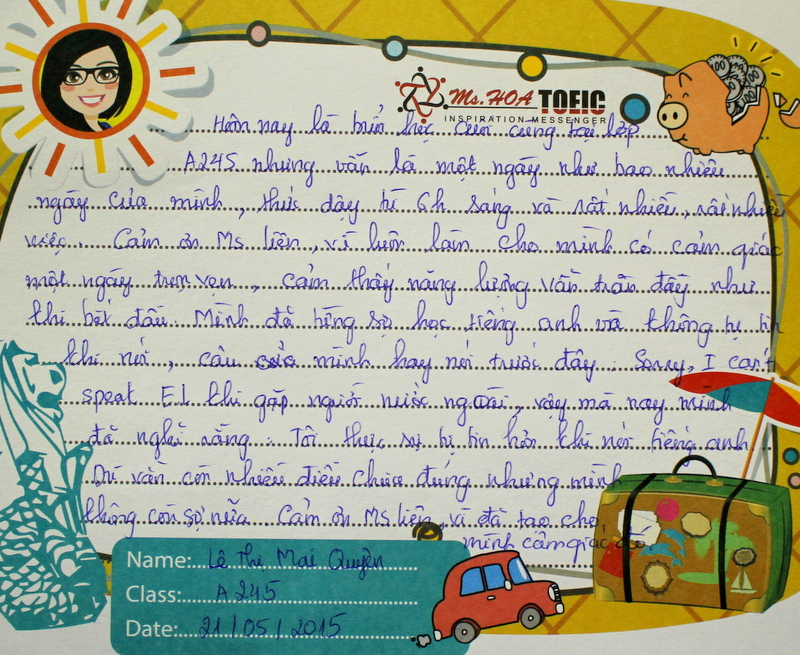 Ms. HOA TOEIC
INSPIRATION MESSENGER
Hôm nay là buổi học cuối cùng tại lớp
A245 nhưng vẫn là một ngày như bao nhiêu
ngày của mình, thức dậy từ 6h sáng và rất nhiều, rất nhiều
việc. Cảm ơn Ms. liên, vì luôn làm cho mình có cảm giác
một ngày trọn vẹn, cảm thấy năng lượng vẫn tràn đầy như
khi bắt đầu. Mình đã từng sợ học tiếng anh và không tự tin
khi nói, câu của mình hay nói trước đây: Sorry, I can't
speak E1 khi gặp người nước ngoài, vậy mà nay mình
đã nghĩ rằng: Tôi thực sự tự tin hơn khi nói tiếng anh
Dù vẫn còn nhiều điều chưa đúng nhưng mình
không còn sợ nữa. Cảm ơn Ms liên, vì đã tạo cho
mình cảm giác đó.
Name: Lê Thị Mai Quyên
Class: A245
Date: 21/05/2015